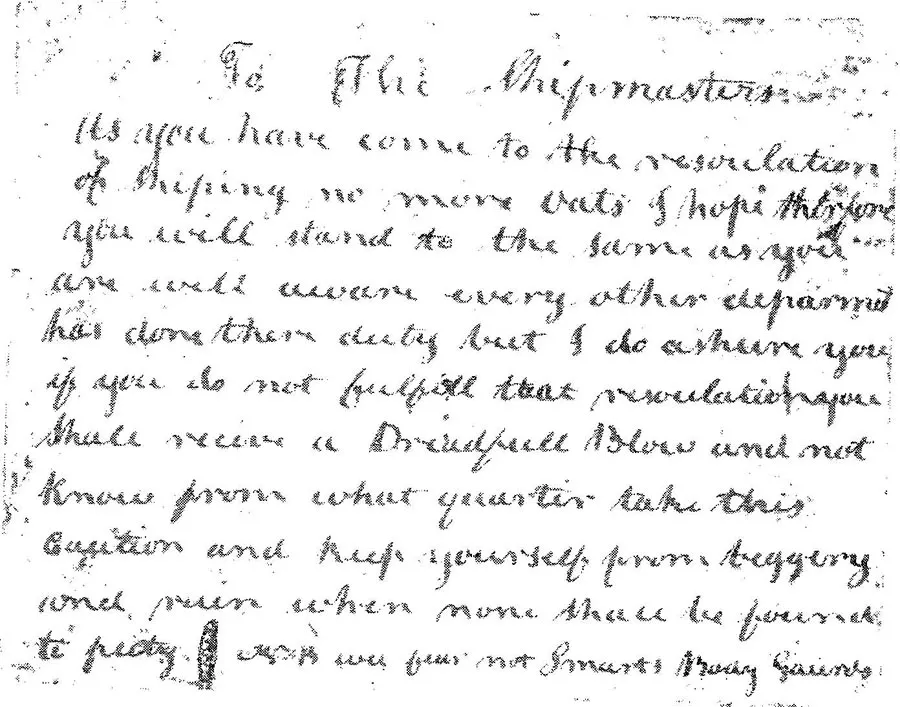 To The Shipmasters
As you have come to the resoulation
of Shiping no more oats I hope therfore
you will stand to the same as you
are well aware every other deparmet
has done there duty but I do ashure you
if you do not fulfill that resoulation you
Shall recive a Dreadfull Blow and not
Know from what quarter take this
Caution and keep yourself from beggery
and ruin when none shall be found
to pety we fear not Smarts Body Gaurds